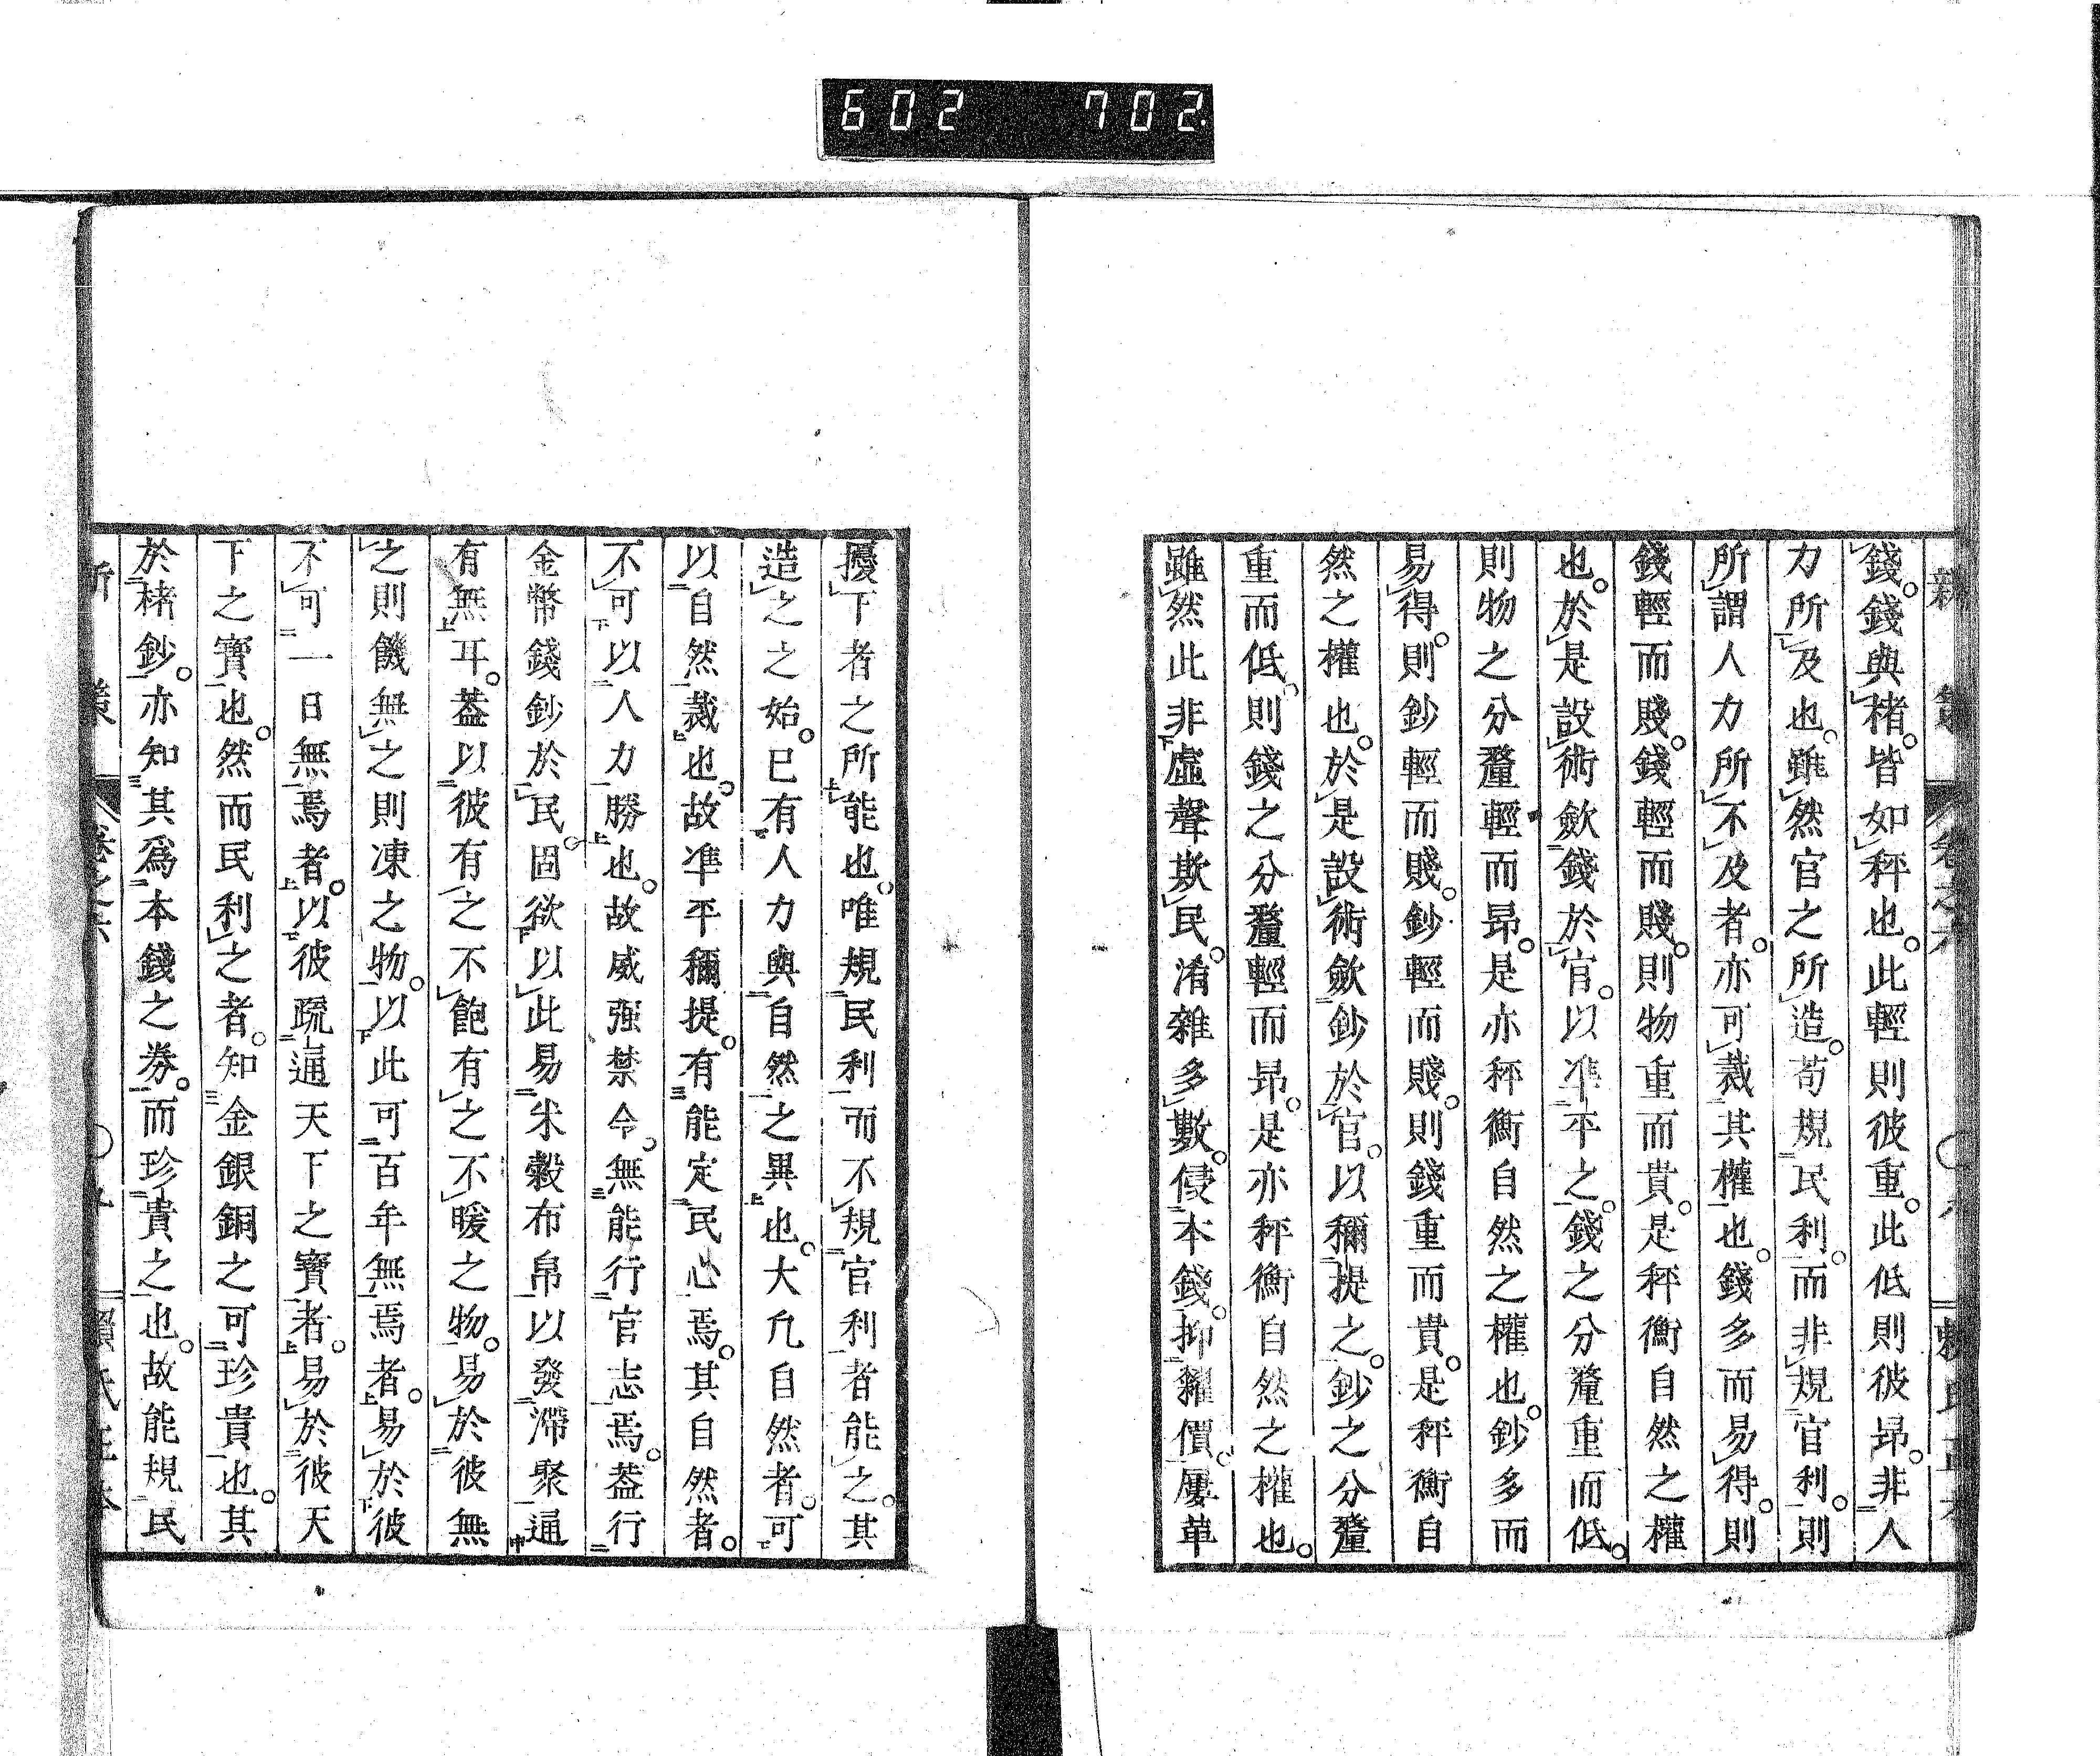 602 702
新策 卷之六 賴氏正本
錢。錢與楮。皆如秤也。此輕則彼重。此低則彼昻。非人
力所及也。雖然官之所造。苟規民利。而非規官利。則
所謂人力所不及者。亦可裁其權也。錢多而易得。則
錢輕而賤。錢輕而賤。則物重而貴。是秤衡自然之權
也。於是設術斂錢於官。以準平之。錢之分釐重而低。
則物之分釐輕而昻。是亦秤衡自然之權也。鈔多而
易得。則鈔輕而賤。鈔輕而賤。則錢重而貴。是秤衡自
然之權也。於是設術斂鈔於官。以稱提之。鈔之分釐
重而低。則錢之分釐輕而昻。是亦秤衡自然之權也。
雖然此非虛聲欺民。淆雜多數。侵本錢。抑糴價。屢革
擾下者之所能也。唯規民利而不規官利者能之。其
造之之始。已有人力與自然之異也。大凡自然者。可
以自然裁也。故準平稱提。有能定民心焉。其自然者。
不可以人力勝也。故威强禁令。無能行官志焉。蓋行
金幣錢鈔於民。固欲以此易米穀布帛以發滯聚通
有無耳。蓋以彼有之不飽有之不暖之物。易於彼無
之則饑無之則凍之物。以此可百年無焉者。易於彼
不可一日無焉者。以彼疏通天下之寶者。易於彼天
下之寶也。然而民利之者。知金銀銅之可珍貴也。其
於楮鈔。亦知其爲本錢之券。而珍貴之也。故能規民
新策 卷之六 賴氏正本